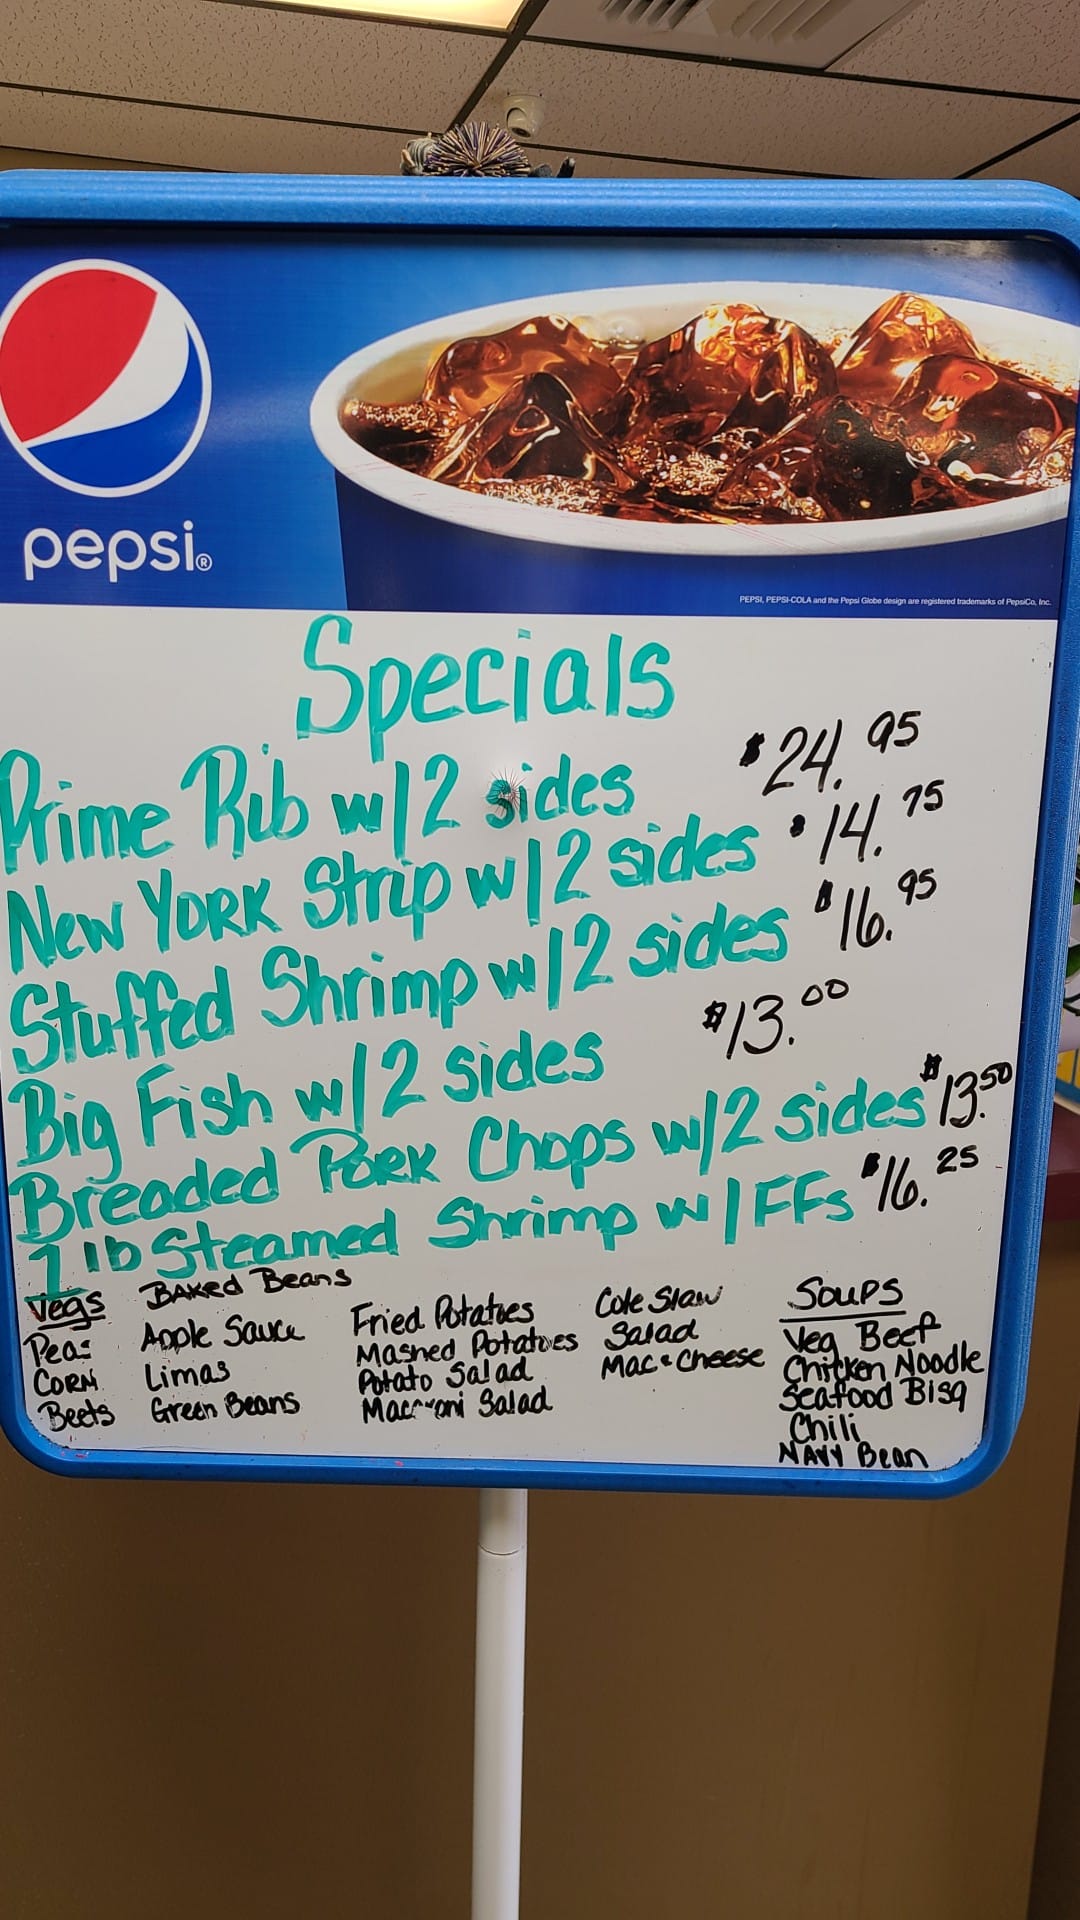 pepsi®
PEPSI, PEPSI-COLA and the Pepsi Globe design are registered trademarks of PepsiCo, Inc.
Specials
Prime Rib w/2 sides $24.95
New York Strip w/2 sides $14.75
Stuffed Shrimp w/2 sides $16.95
Big Fish w/2 sides $13.00
Breaded Pork Chops w/2 sides $13.50
1 lb Steamed Shrimp w/FFs $16.25
Vegs
Peas
Corn
Beets
Baked Beans
Apple Sauce
Limas
Green Beans
Fried Potatoes
Mashed Potatoes
Potato Salad
Macaroni Salad
Cole Slaw
Salad
Mac & Cheese
Soups
Veg Beef
Chicken Noodle
Seafood Bisq
Chili
Navy Bean